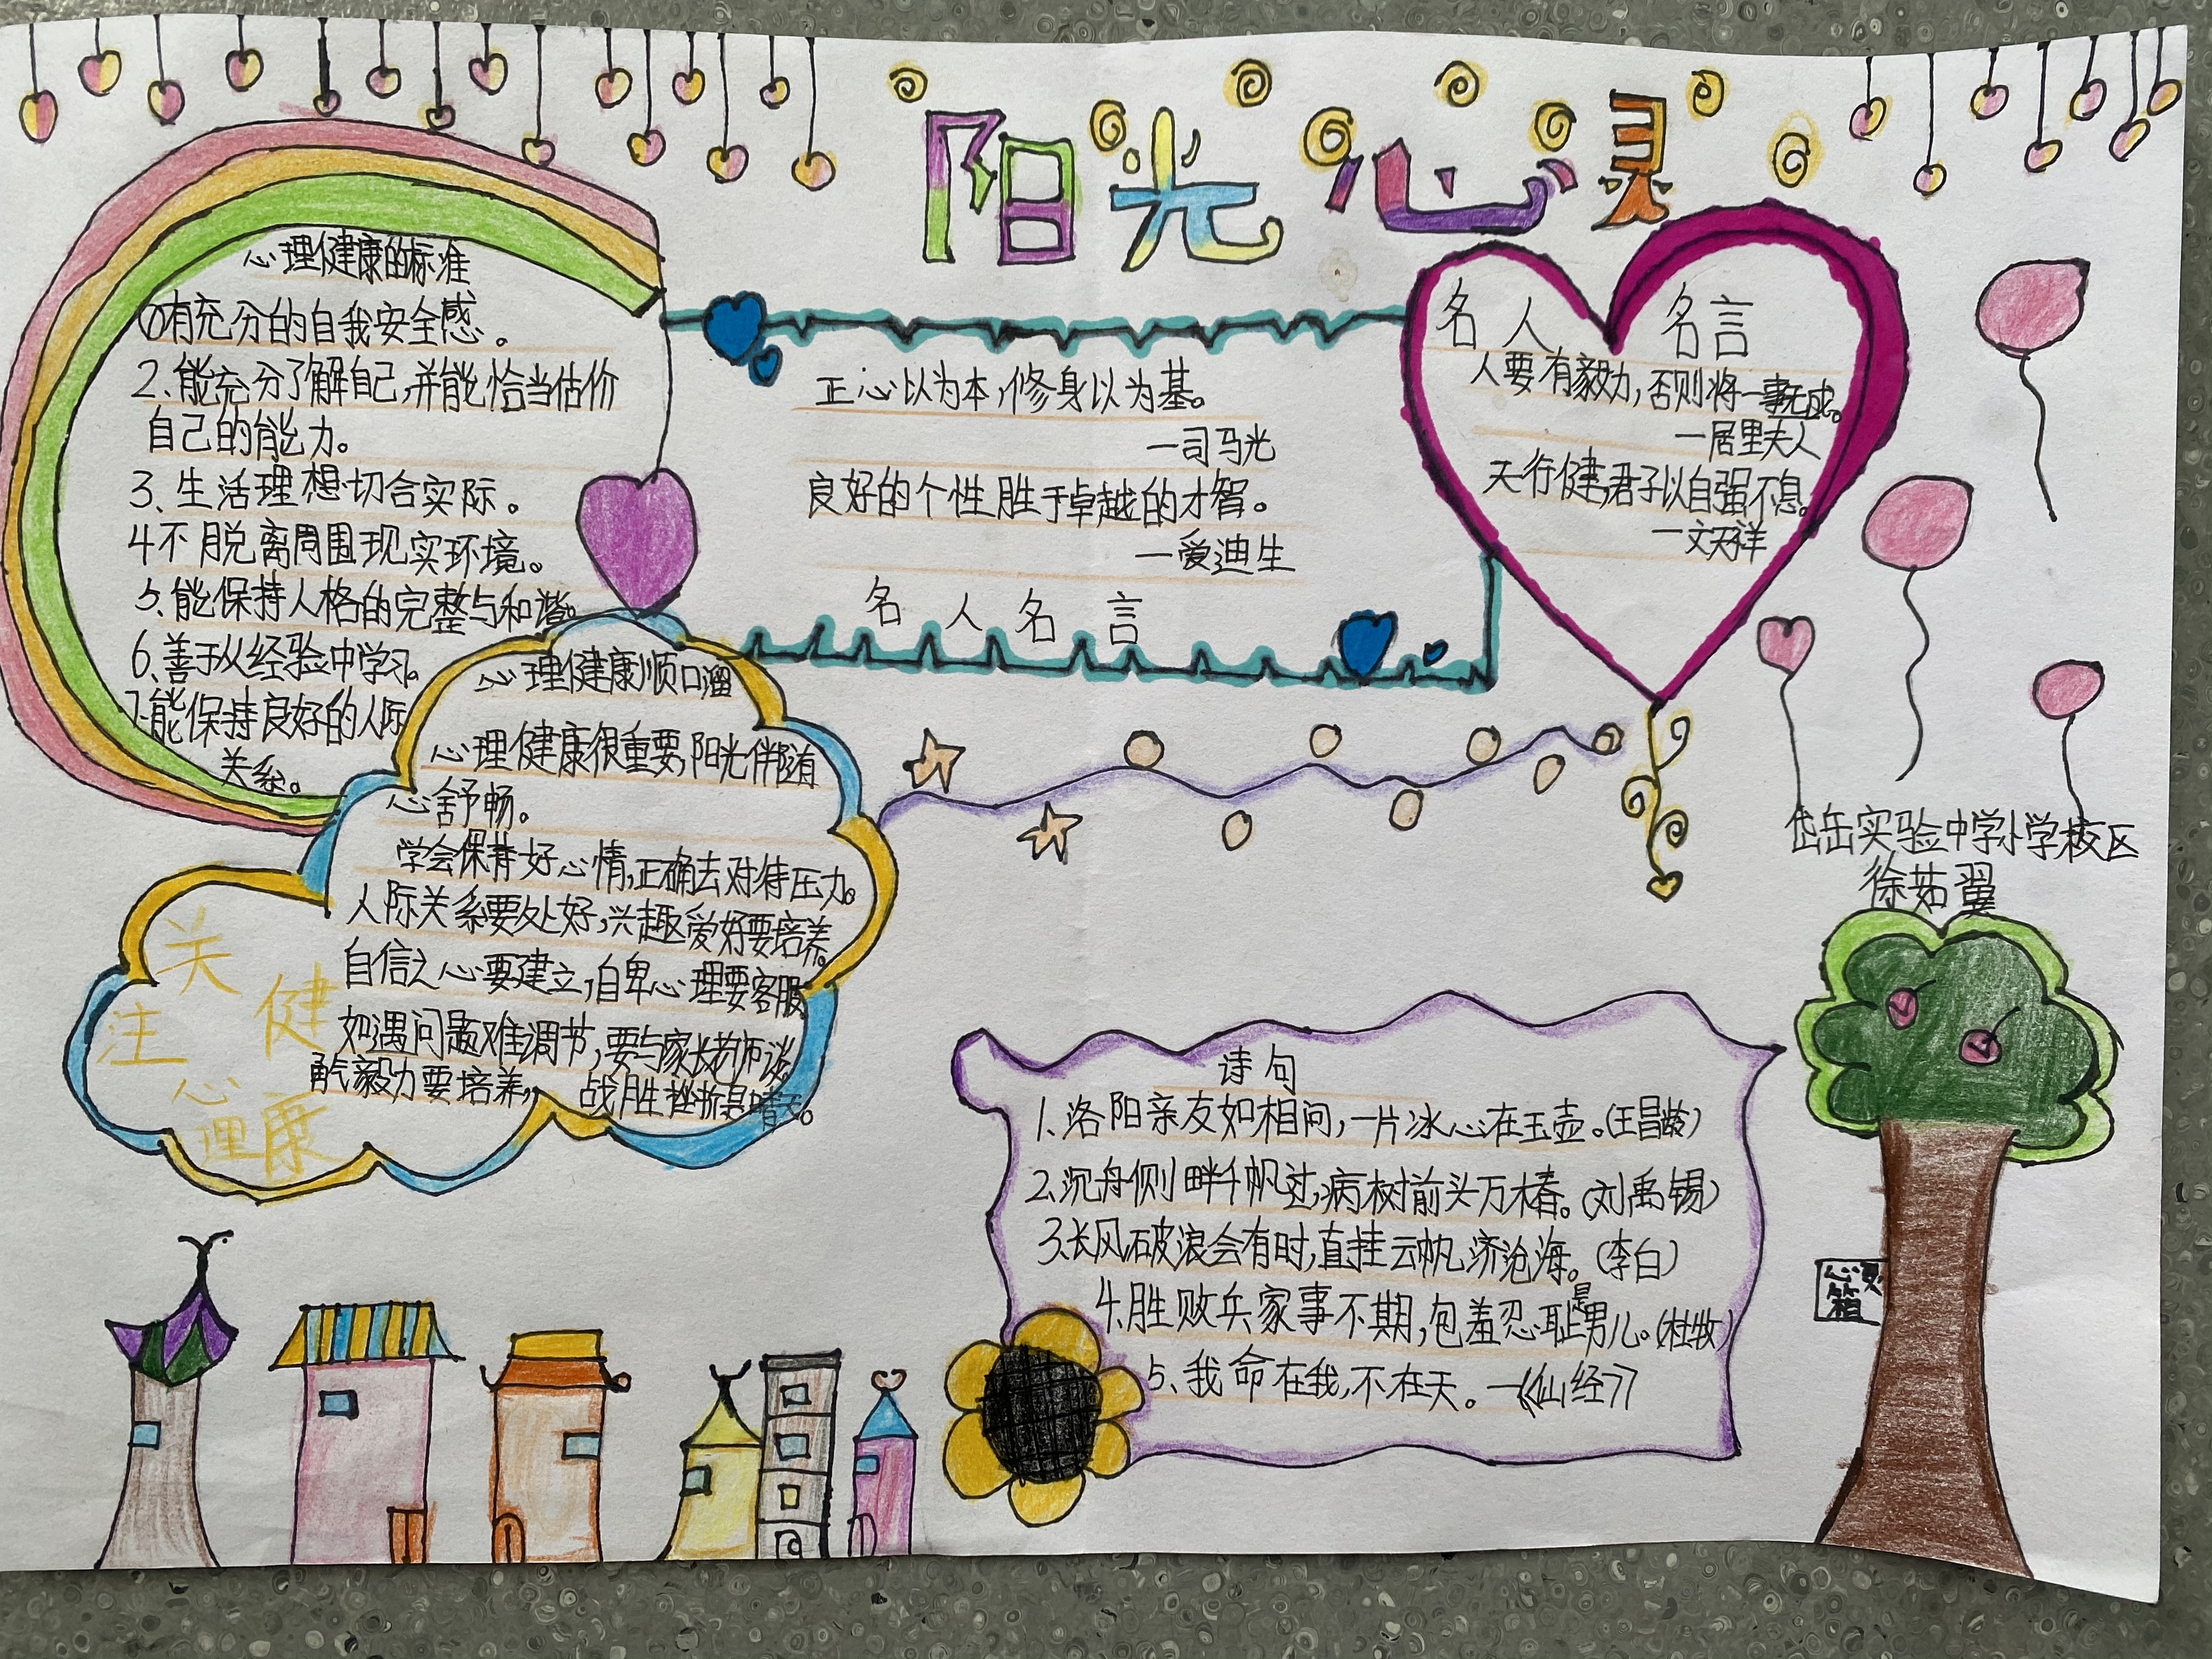 阳光心灵
心理健康的标准
①有充分的自我安全感。
2、能充分了解自己,并能恰当估价
自己的能力。
3、生活理想切合实际。
4不脱离周围现实环境。
5、能保持人格的完整与和谐。
6、善于从经验中学习。
7、能保持良好的人际
关系。
正心以为本,修身以为基。
一司马光
良好的个性胜于卓越的才智。
一爱迪生
名人名言
名人 名言
人要有毅力,否则将一事无成。
一居里夫人
天行健,君子以自强不息。
一文天祥
心理健康顺口溜
心理健康很重要,阳光伴随有
心舒畅。
学会保持好心情,正确去对待压力。
人际关系要处好,兴趣爱好要培养。
自信之心要建立,自卑心理要客服
如遇问题难调节,要与家长老师谈。
勇气毅力要培养,战胜挫折是晴天。
关注心理健康
岱岳实验中学小学校区
徐茹翼
诗句
1、洛阳亲友如相问,一片冰心在玉壶。(王昌龄)
2、沉舟侧畔千帆过,病树前头万木春。(刘禹锡)
3、长风破浪会有时,直挂云帆济沧海。(李白)
4、胜败兵家事不期,包羞忍耻是男儿。(杜牧)
5、我命在我,不在天。一《仙经》
心灵
箱